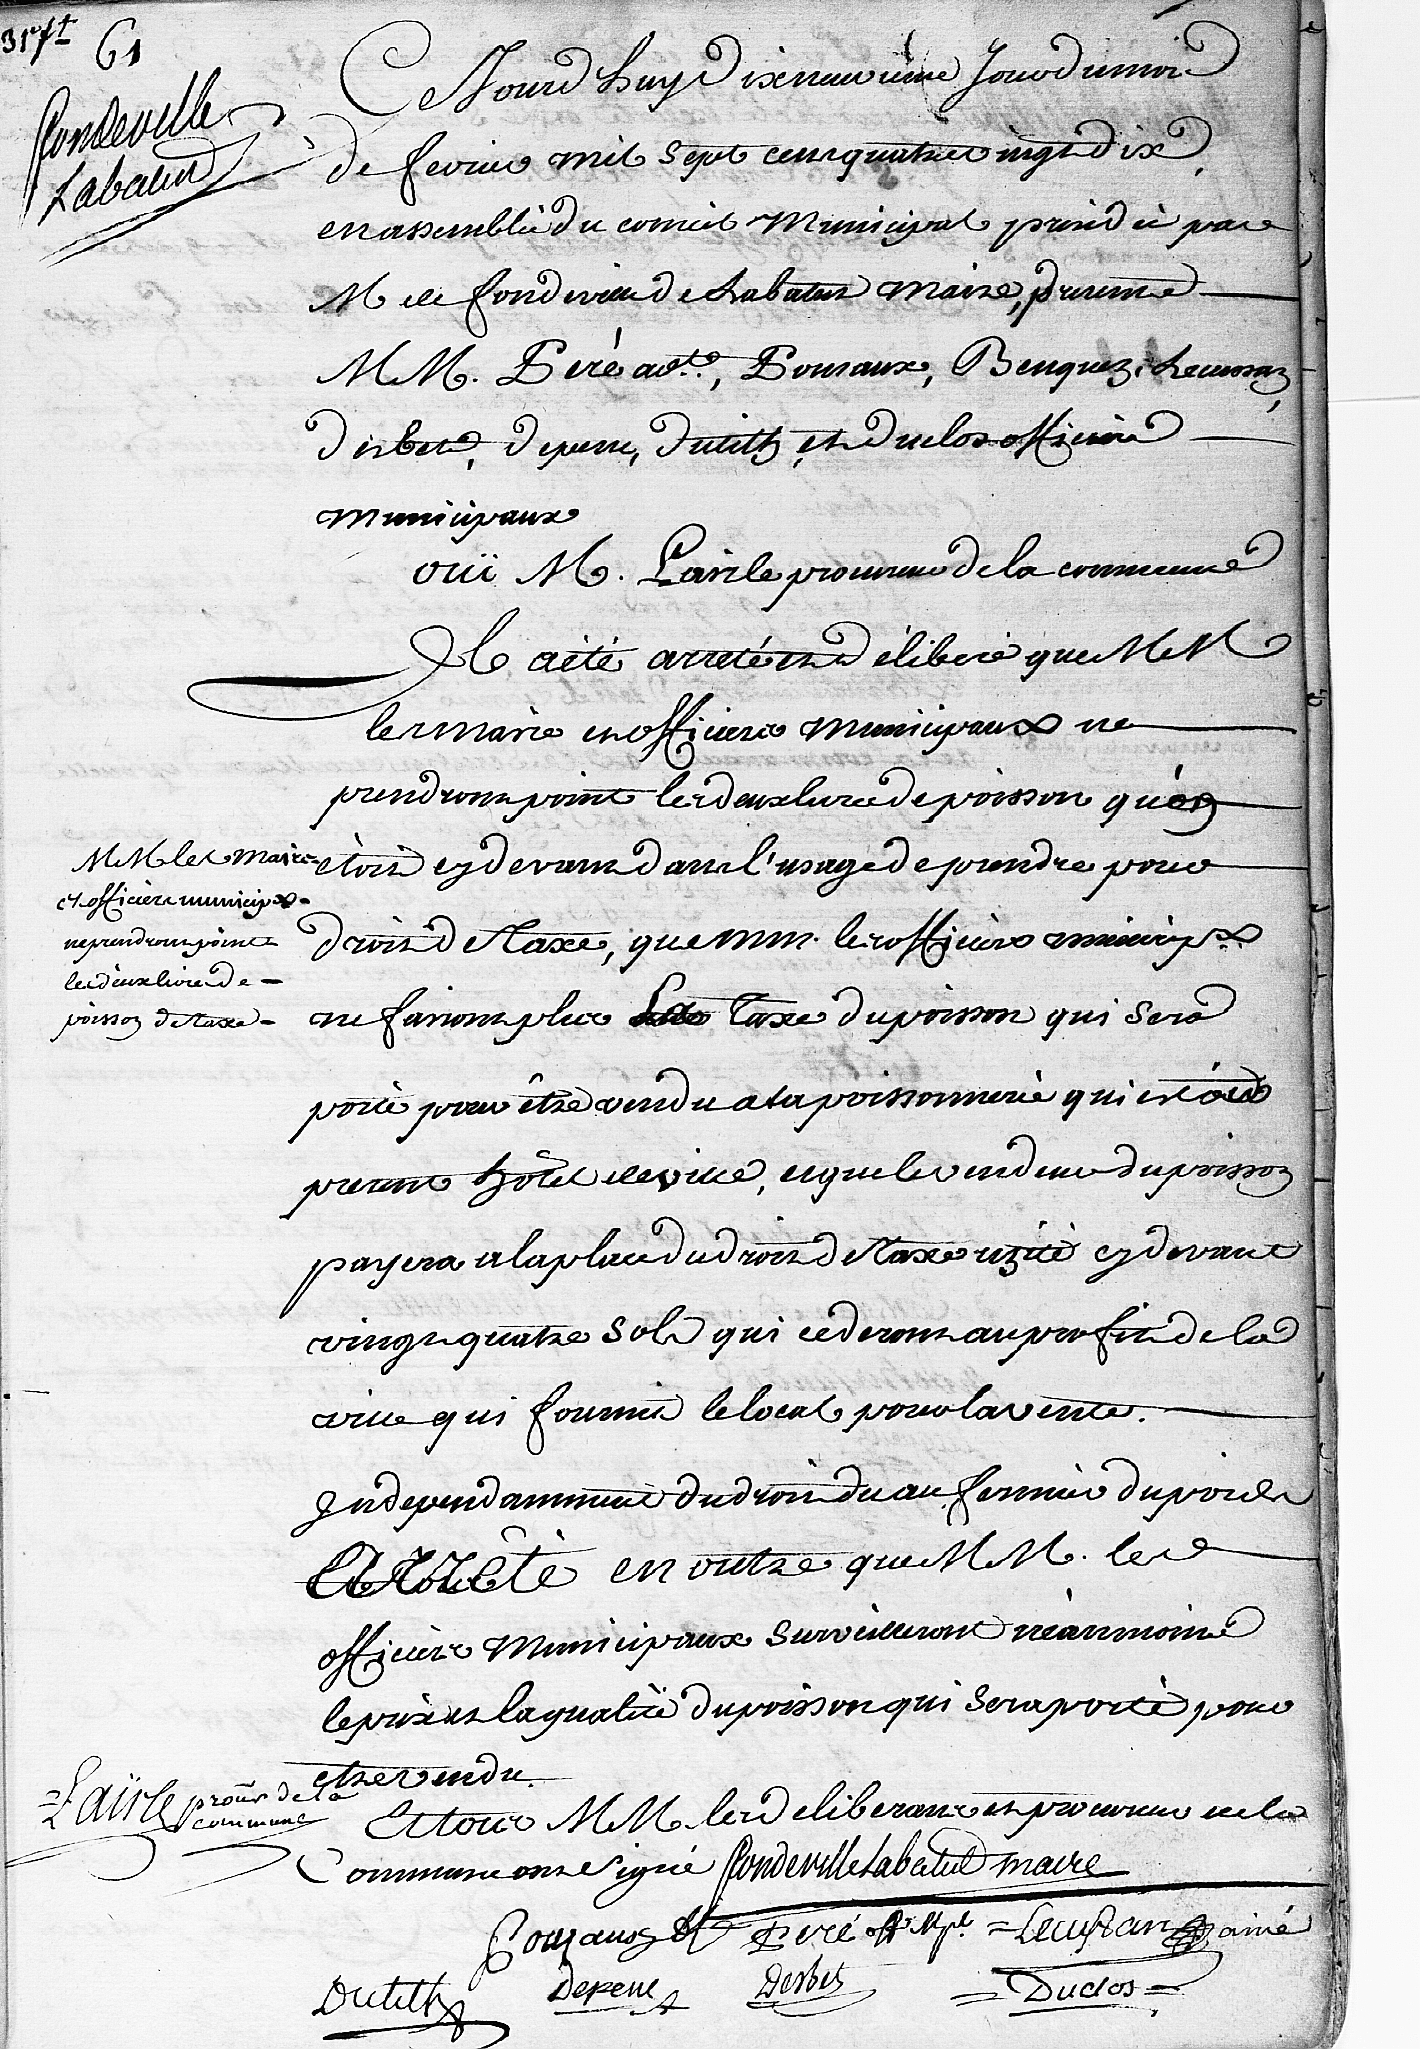 317t 61
fondeville
Labatut
Cejourdhuy dixneuvième Jour du mois
de fevrier mil sept cens quatrevingt dix
en assemblée du conseil Municipal présidée par
M de fondeville de Labatut maire, presents
MM. Péré adt., Pouzaux, Benquez, Lecussan,
disbets, depenne, dutilh, et duclos officiers
municipaux
oüi M. Lairle procureur de la commune
Il a été arreté et délibéré que MM
les maire et officiers municipaux ne
prendront point les deux livres de poisson qu'on
étoit cy devant dans l'usage de prendre pour
droit de taxe, que mm. les officiers municipx
ne fairont plus la taxe du poisson qui sera
porté pour être vendu a la poissonnerie qui est au
present hôtel de ville, et que le vendeur du poisson
payera a la place du droit de taxe uzité cy devant
vingt quatre sols qui cederont au profit de la
ville qui fournit le local pour la vente.
Independamment du droit du au fermier du poids
Arrêté en outre que MM. les
officiers Municipaux surveilleront néanmoins
le prix et la qualité du poisson qui sera porté pour
etre vendu.
Et tous MM les deliberants et procureur de la
Commune ont signé fondeville Labatut maire
MM les maire
et officiers municipx
ne prendront point
les deux livres de
poisson de taxe
Lairle procur de la
commune
Pouzaux péré off Mpl. Lecussan ainé
Dutilh Depene Desbets Duclos